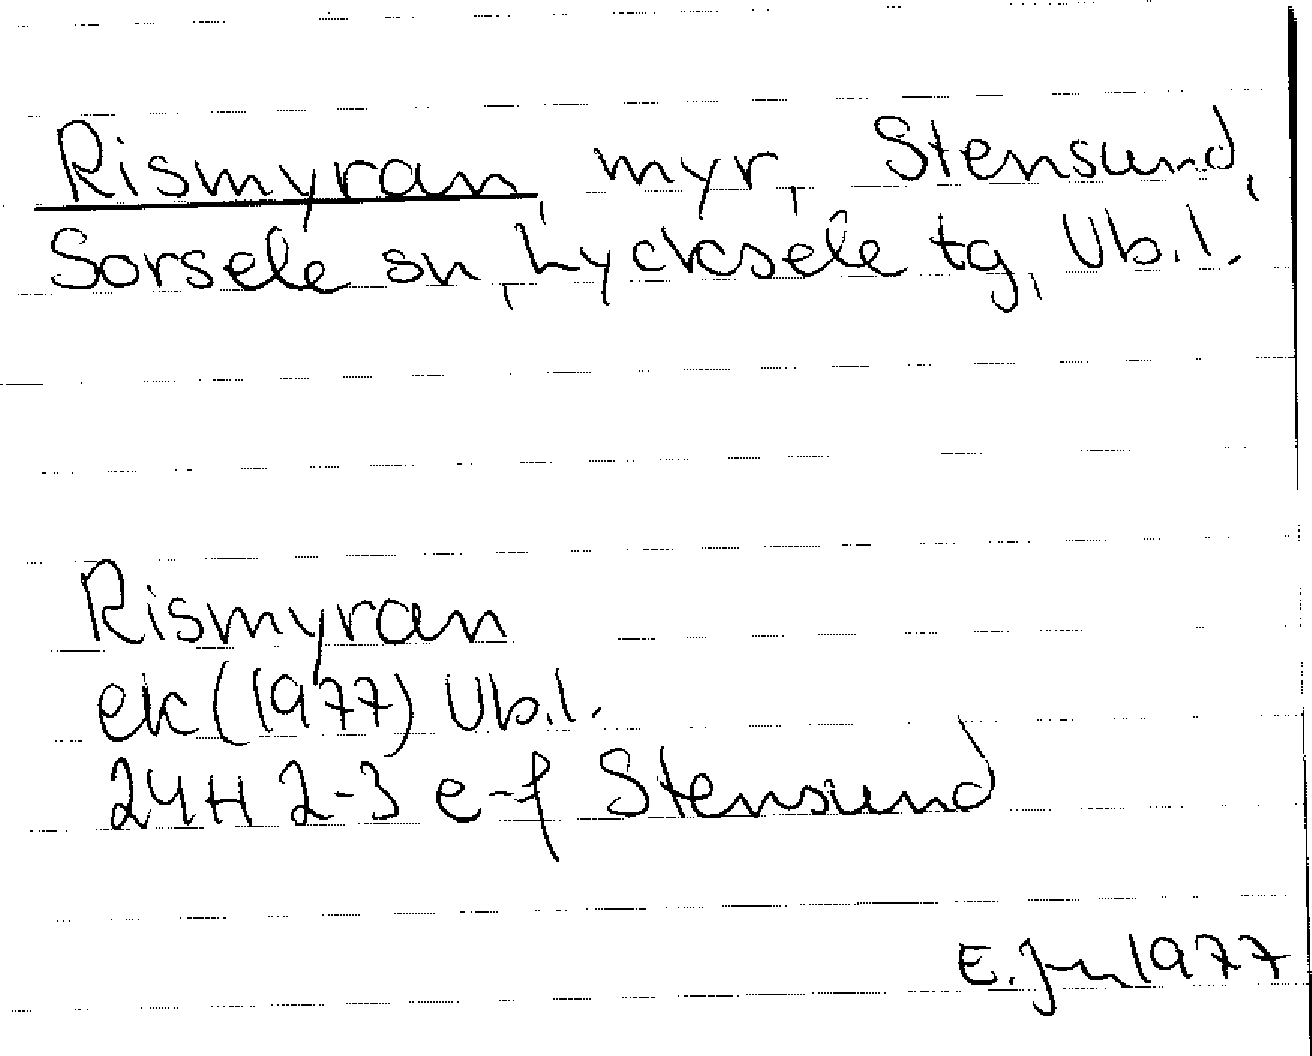 Rismyran, myr, Stensund,
Sorsele sn, Lycksele tg, Vb.l.
Rismyran
ek (1977) Vb.l.
24H 2-3 e-f Stensund
E. 1977